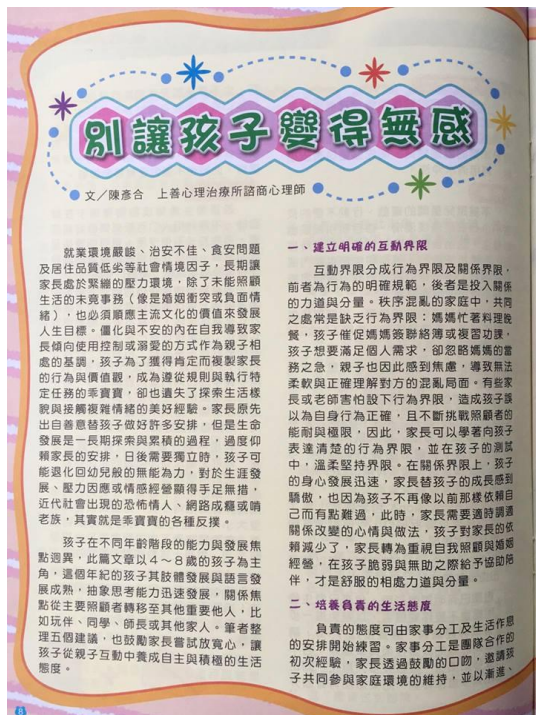 別讓孩子變得無感
文／陳彥合　上善心理治療所諮商心理師
就業環境嚴峻、治安不佳、食安問題
及居住品質低劣等社會情境因子，長期讓
家長處於緊繃的壓力環境，除了未能照顧
生活的未竟事務（像是婚姻衝突或負面情
緒），也必須順應主流文化的價值來發展
人生目標。僵化與不安的內在自我導致家
長傾向使用控制或溺愛的方式作為親子相
處的基調，孩子為了獲得肯定而複製家長
的行為與價值觀，成為遵從規則與執行特
定任務的乖寶寶，卻也遺失了探索生活樣
貌與接觸複雜情緒的美好經驗。家長原先
出自善意替孩子做好許多安排，但是生命
發展是一長期探索與累積的過程，過度仰
賴家長的安排，日後需要獨立時，孩子可
能退化回幼兒般的無能為力，對於生涯發
展、壓力因應或情感經營顯得手足無措，
近代社會出現的恐怖情人、網路成癮或啃
老族，其實就是乖寶寶的各種反撲。
孩子在不同年齡階段的能力與發展焦
點迥異，此篇文章以４～８歲的孩子為主
角，這個年紀的孩子其肢體發展與語言發
展成熟，抽象思考能力迅速發展，關係焦
點從主要照顧者轉移至其他重要他人，比
如玩伴、同學、師長或其他家人。筆者整
理五個建議，也鼓勵家長嘗試放寬心，讓
孩子從親子互動中養成自主與積極的生活
態度。
一、建立明確的互動界限
互動界限分成行為界限及關係界限，
前者為行為的明確規範，後者是投入關係
的力道與分量。秩序混亂的家庭中，共同
之處常是缺乏行為界限：媽媽忙著料理晚
餐，孩子催促媽媽簽聯絡簿或複習功課，
孩子想要滿足個人需求，卻忽略媽媽的當
務之急，親子也因此感到焦慮，導致無法
柔軟與正確理解對方的混亂局面。有些家
長或老師害怕設下行為界限，造成孩子誤
以為自身行為正確，且不斷挑戰照顧者的
能耐與極限，因此，家長可以學著向孩子
表達清楚的行為界限，並在孩子的測試
中，溫柔堅持界限。在關係界限上，孩子
的身心發展迅速，家長替孩子的成長感到
驕傲，也因為孩子不再像以前那樣依賴自
己而有點難過，此時，家長需要適時調適
關係改變的心情與做法，孩子對家長的依
賴減少了，家長轉為重視自我照顧與婚姻
經營，在孩子脆弱與無助之際給予協助陪
伴，才是舒服的相處力道與分量。
二、培養負責的生活態度
負責的態度可由家事分工及生活作息
的安排開始練習。家事分工是團隊合作的
初次經驗，家長透過鼓勵的口吻，邀請孩
子共同參與家庭環境的維持，並以漸進、
8